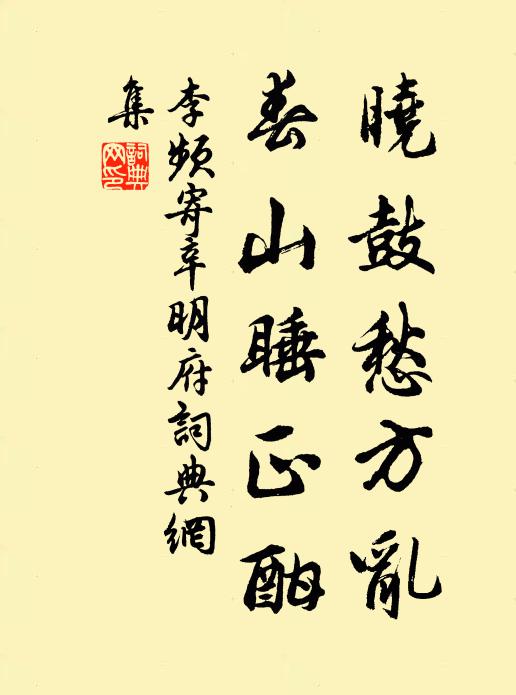 曉鼓愁方亂
春山睡正酣
李頻寄辛明府詞典網
集
詞典
网印